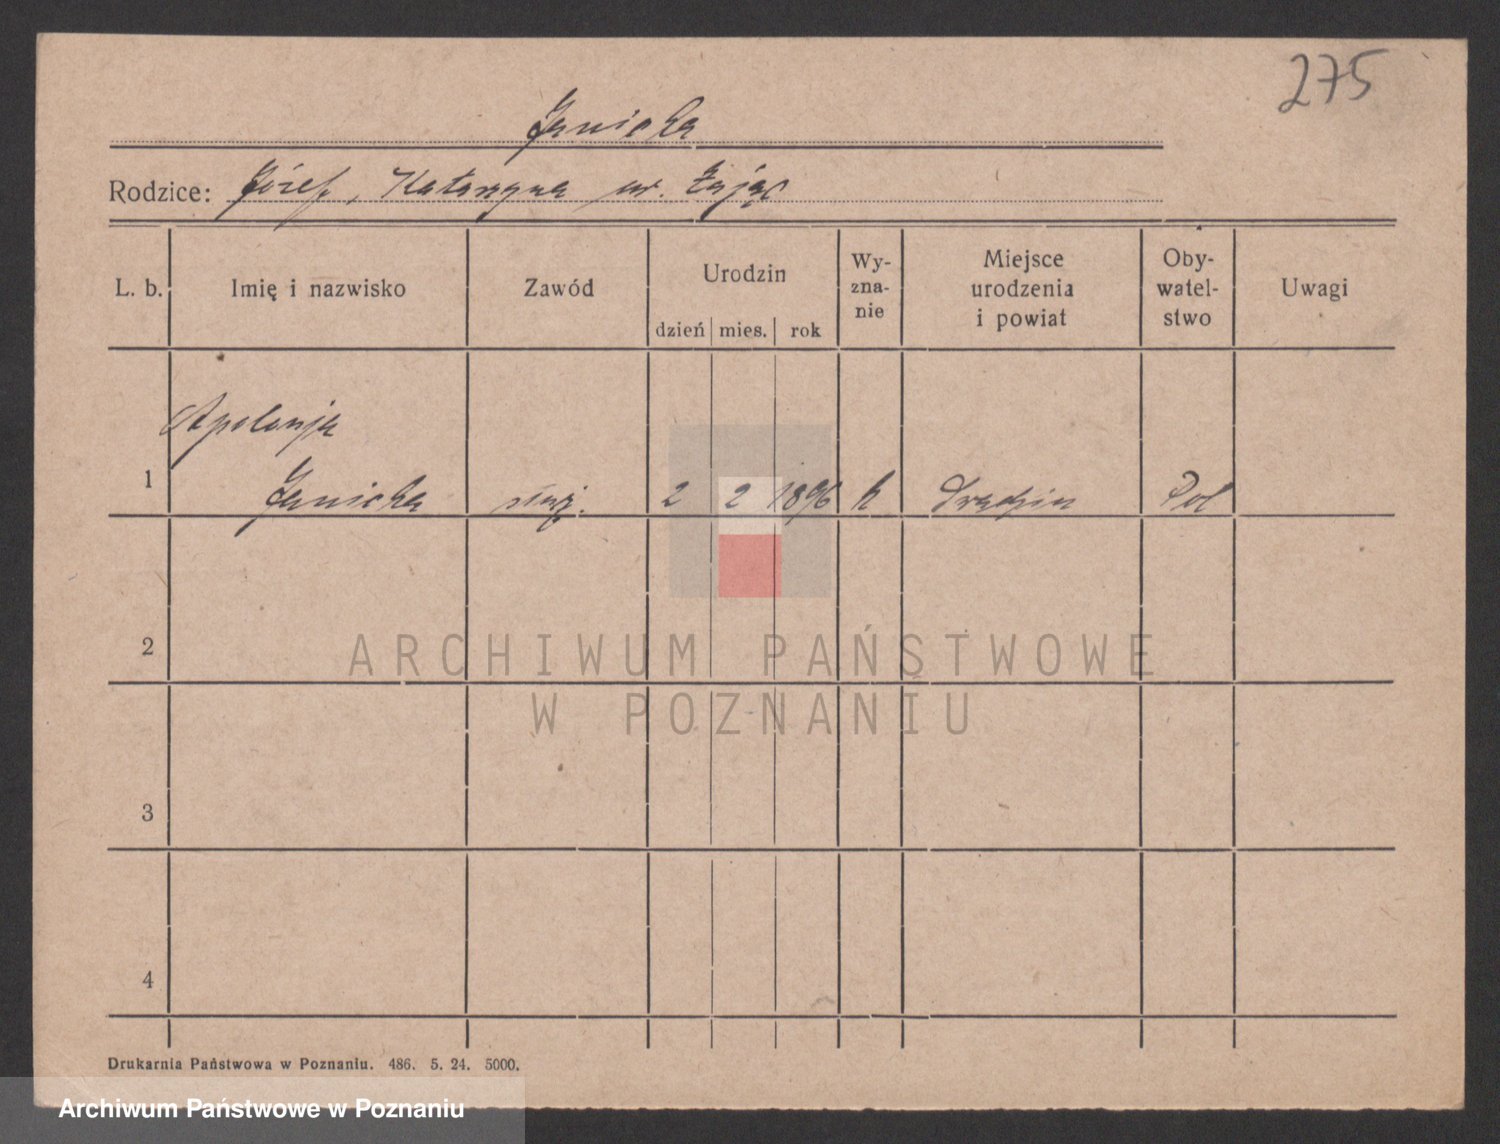 275
Janicka
Rodzice: Józef, Katarzyna ur. Zając
L. b. Imię i nazwisko Zawód Urodzin dzień mies. rok Wy-zna-nie Miejsce urodzenia i powiat Oby-watel-stwo Uwagi
Apolonja
1 Janicka służ. 2 2 1896 k Pol
2
3
4
ARCHIWUM PAŃSTWOWE
W POZNANIU
Drukarnia Państwowa w Poznaniu. 486. 5. 24. 5000.
Archiwum Państwowe w Poznaniu